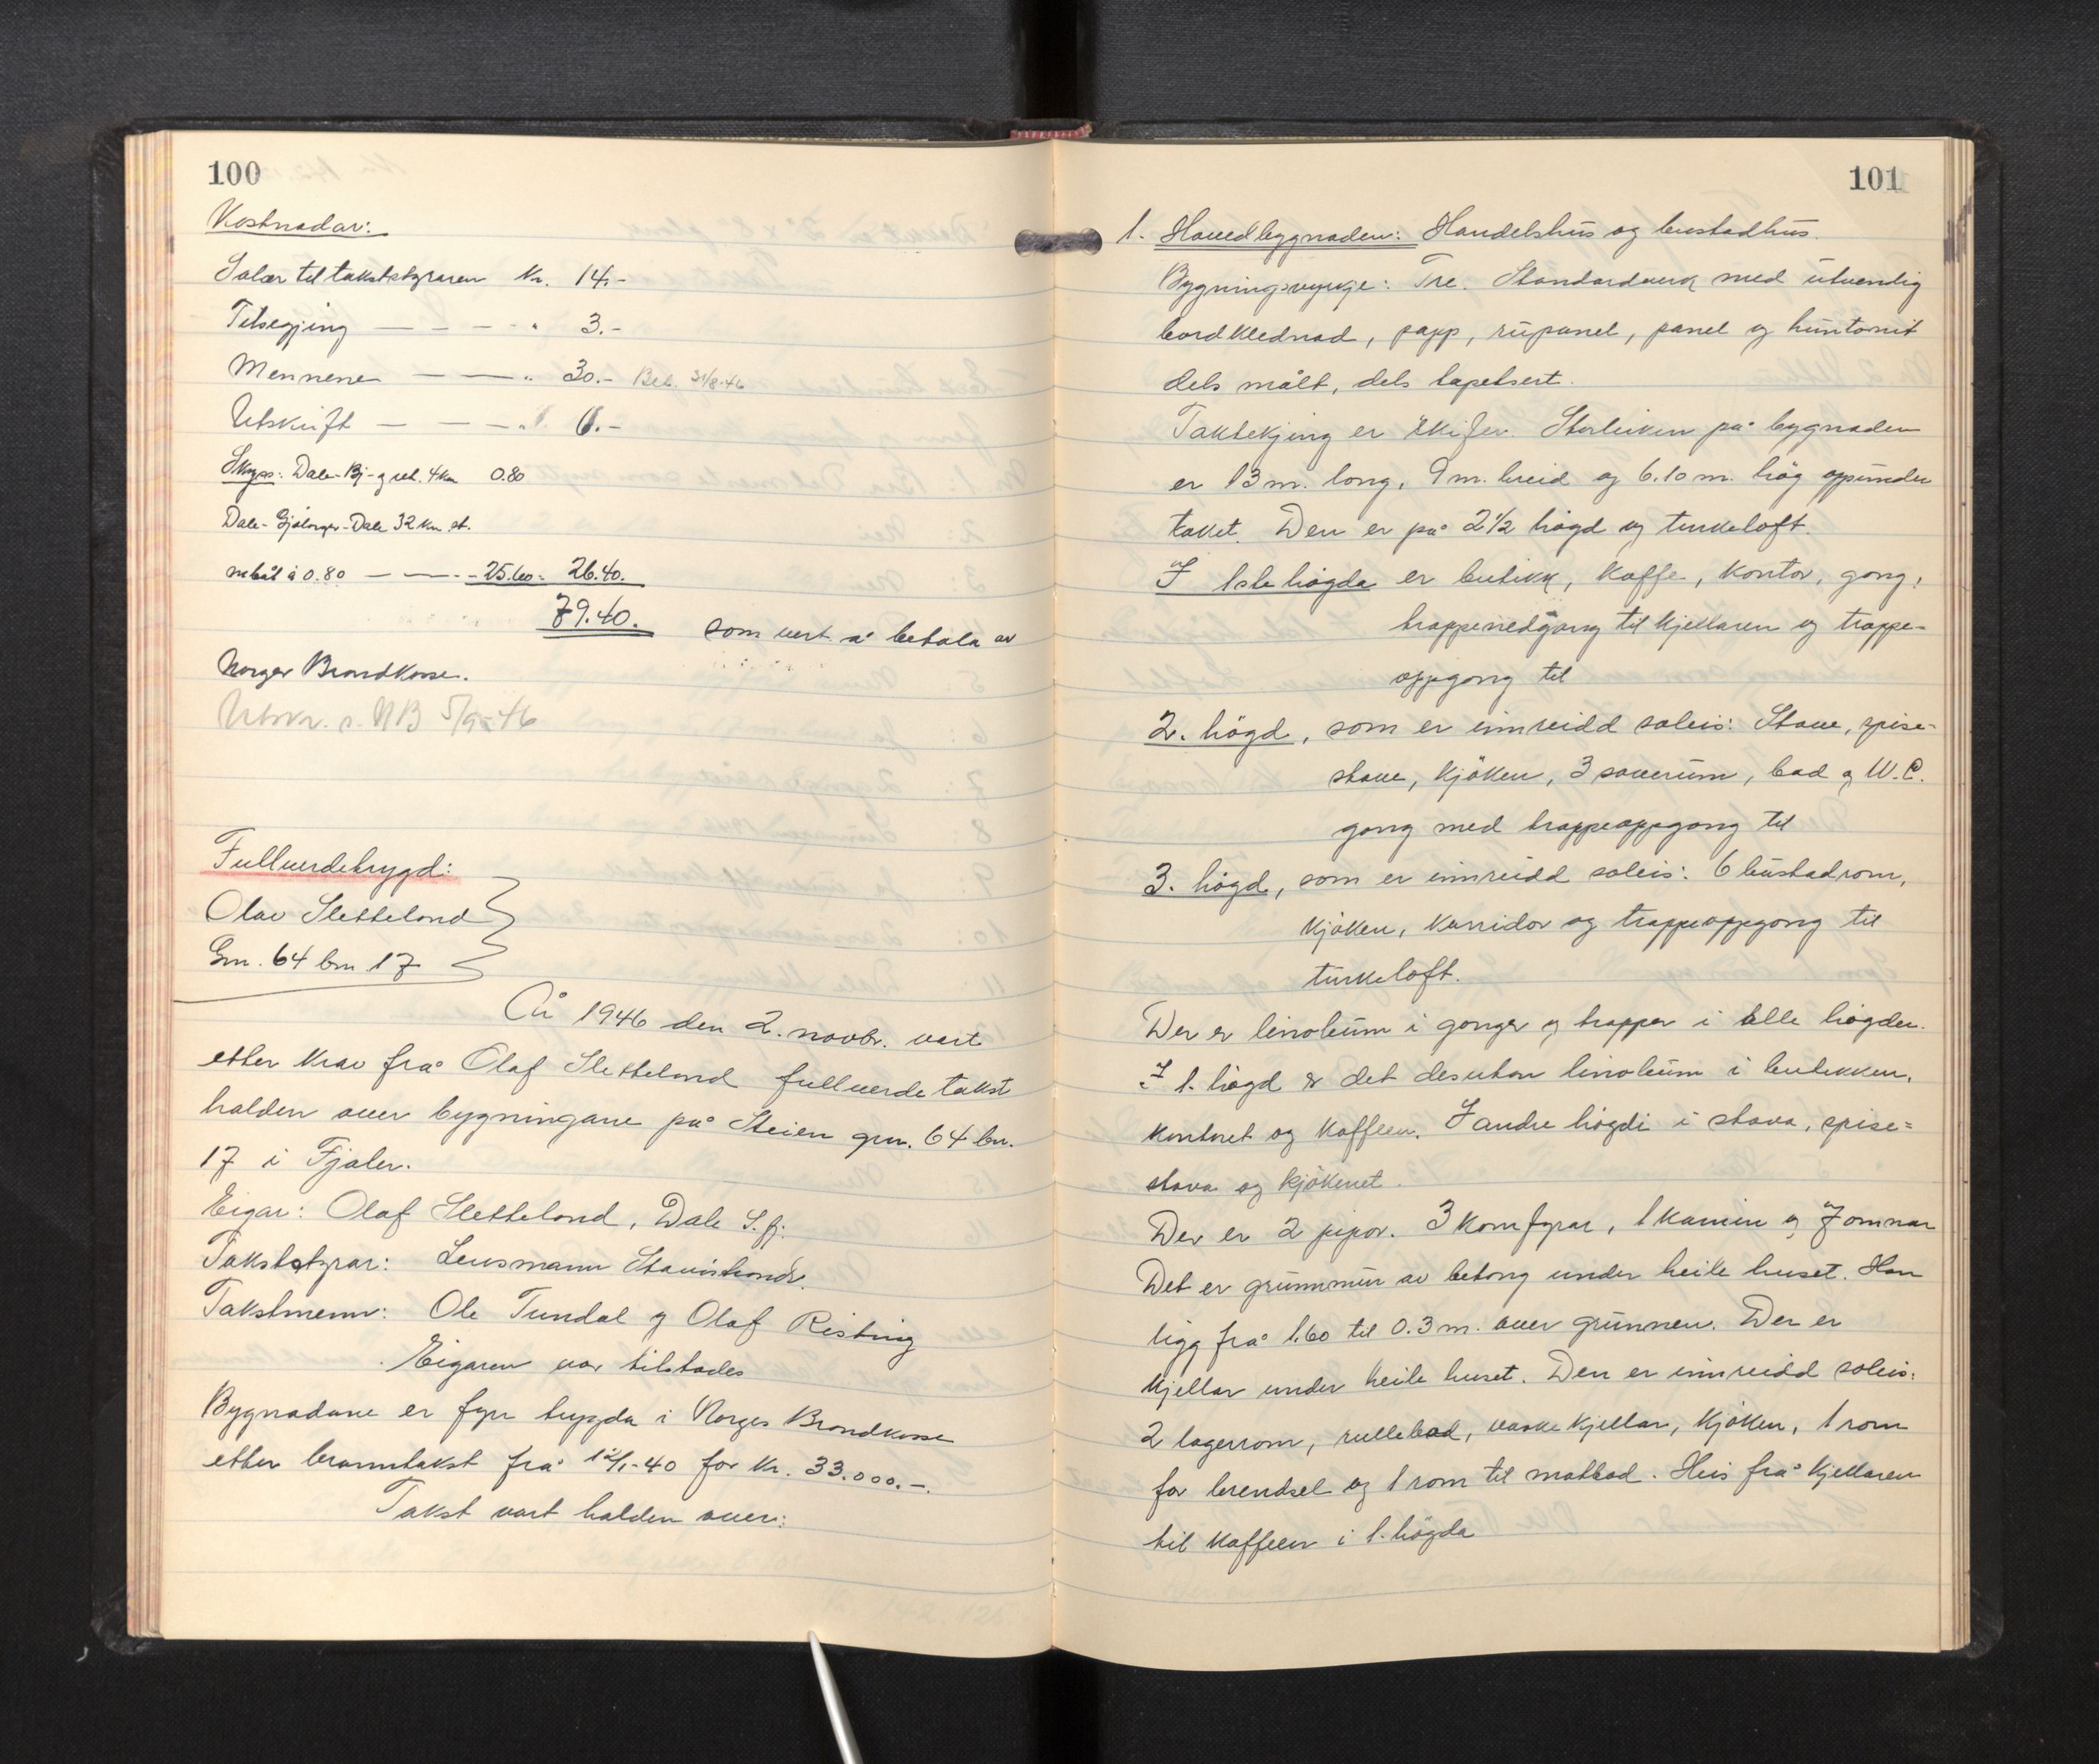 100
Kostnadar:
Salær til takststyraren Kr. 14,-
Tilsegjing — — — - " 3.-
Mennene — — " 30.- Bet. 31/8-46
Utskrift — — — " 6.-
Skyss: Dale-Bj- og ret. 4 km 0.80
Dale- -Dale 32 km st.
m båt à 0.80 — — - 25.60 = 26.40.
79.40. som vert å betala av
Norges Brandkasse.
Utskr. s. NB 5/9-46
Fullverdetrygd:
Olav Sletteland
Gm. 64 bm 17
År 1946 den 2. novbr. vart
etter krav frå Olaf Sletteland fullverdetakst
halden over bygningane på Steien gm. 64 bn.
17 i Fjaler.
Eigar: Olaf Sletteland, Dale S.fj:
Takststyrar: Lensmann
Takstmenn: Ole Tundal og Olaf Risting
Eigaren var tilstades
Bygnadane er fyrr trygda i Norges Brandkasse
etter branntakst frå 12/1-40 for kr. 33.000.-.
Takst vart halden over:
101
1. Hovedbygnaden: Handelshus og bustadhus.
Bygningsvyrkje: Tre. Standardverk med utvendig
bordklednad, papp, rupanel, panel og huntonit
dels målt, dels tapetsert.
Taktekjing er skifer. Storleiken på bygnaden
er 13 m. long, 9 m. breid og 6.10 m. høg oppunder
taket. Den er på 2 1/2 högd og turkeloft.
I 1ste högda er butikk, kaffe, kontor, gong,
trappenedgang til kjellaren og trappe-
oppgong til
2. högd, som er innreidd soleis: Stove, spise-
stove, kjöken, 3 soverum, bad og W.C.
gong med trappeoppgong til
3. högd, som er innreidd soleis: 6 bustadrom,
kjöken, korridor og trappeoppgong til
turkeloft.
Der er linoleum i gonger og trapper i alle högder.
I 1. högd er det desutan linoleum i butikken,
kontoret og kaffeen. I andre högdi i stova, spise=
stova og kjökenet.
Der er 2 pipor. 3 komfyrar, 1 kamin og 7 omnar
Det er grunnmur av betong under heile huset. Han
ligg frå 1.60 til 0.3 m. over grunnen. Der er
kjellar under heile huset. Den er innreidd soleis:
2 lagerrom, rullebod, vaskekjellar, kjöken, 1 rom
for brendsel og 1 rom til matbod. Heis frå kjellaren
til kaffeen i 1. högda